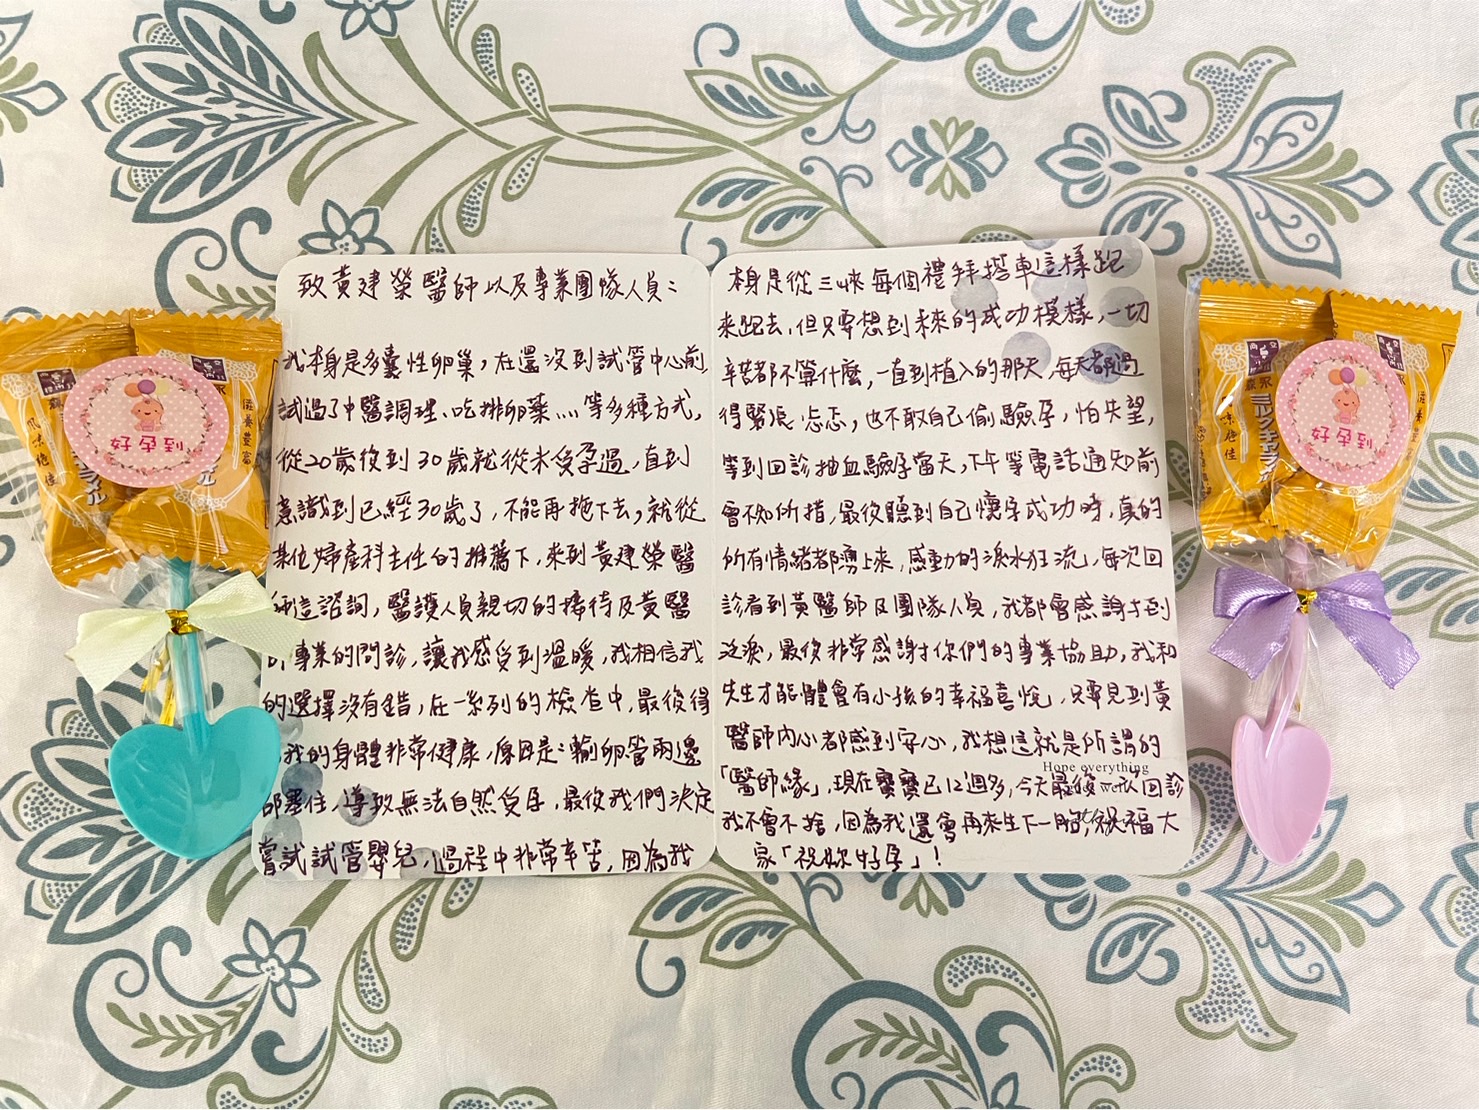 致黃建榮醫師以及專業團隊人員：
我本身是多囊性卵巢，在還沒到試管中心前，
試過了中醫調理、吃排卵藥....等多種方式，
從20歲後到30歲就從未受孕過，直到
意識到已經30歲了，不能再拖下去，就從
某位婦產科主任的推薦下，來到黃建榮醫
師這諮詢，醫護人員親切的接待及黃醫
師專業的問診，讓我感受到溫暖，我相信我
的選擇沒有錯，在一系列的檢查中，最後得
我的身體非常健康，原因是：輸卵管兩邊
都塞住，導致無法自然受孕，最後我們決定
嘗試試管嬰兒，過程中非常辛苦，因為我
本身是從三峽每個禮拜搭車這樣跑
來跑去，但只要想到未來的成功模樣，一切
辛苦都不算什麼，一直到植入的那天，每天都過
得緊張忐忑，也不敢自己偷驗孕，怕失望，
等到回診抽血驗孕當天，下午等電話通知前
會不知所措，最後聽到自己懷孕成功時，真的
所有情緒都湧上來，感動的淚水狂流，每次回
診看到黃醫師及團隊人員，我都會感謝到
泛淚，最後非常感謝你們的專業協助，我和
先生才能體會有小孩的幸福喜悅，只要見到黃
醫師內心都感到安心，我想這就是所謂的
Hope everything
「醫師緣」，現在寶寶已12週多，今天最後一次回診
我不會不捨，因為我還會再來生下一胎，祝福大
家「祝妳好孕」！
好孕到
好孕到
森永
ミルクキャラメル
滋養豐富
風味絕佳